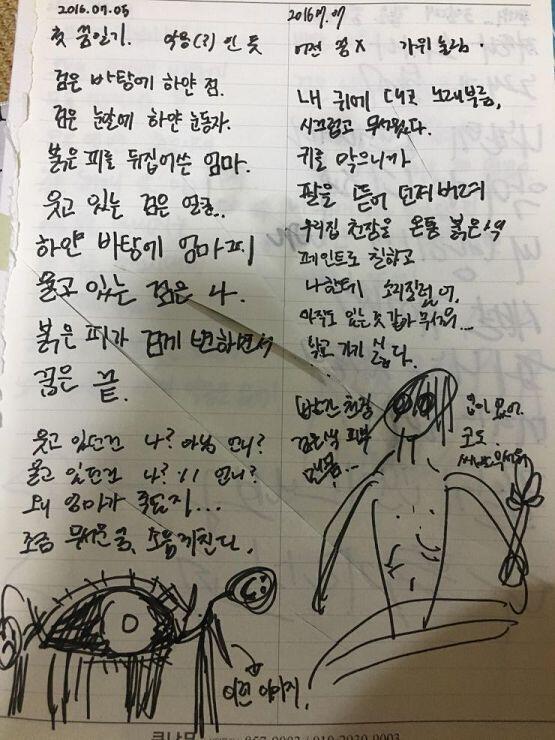 2016.07.05
첫 꿈일기. 악몽(?)인 듯
검은 바탕에 하얀 점.
검은 눈알에 하얀 눈동자.
붉은 피를 뒤집어쓴 엄마.
웃고 있는 검은 얼굴..
하얀 바탕에 엄마피
울고 있는 검은 나.
붉은 피가 검게 변하면서
꿈은 끝.
웃고 있던건 나? 아님 언니?
울고 있던건 나? 〃 언니?
왜 엄마가 죽었지...
조금 무서운 꿈, 소름끼친다.
이런 이미지.
2016.07.07
어떤 꿈X 가위눌림.
내 귀에 대고 노래부름,
시끄럽고 무서웠다.
귀를 막으니까
팔을 뜯어 던져버려
우리집 천장을 온통 붉은색
페인트로 칠하고
나한테 소리질렀어,
아직도 있는 것 같아 무서워...
학교 가기 싫다.
빨간 천장
검은색 피부
입이 없어.
코도.